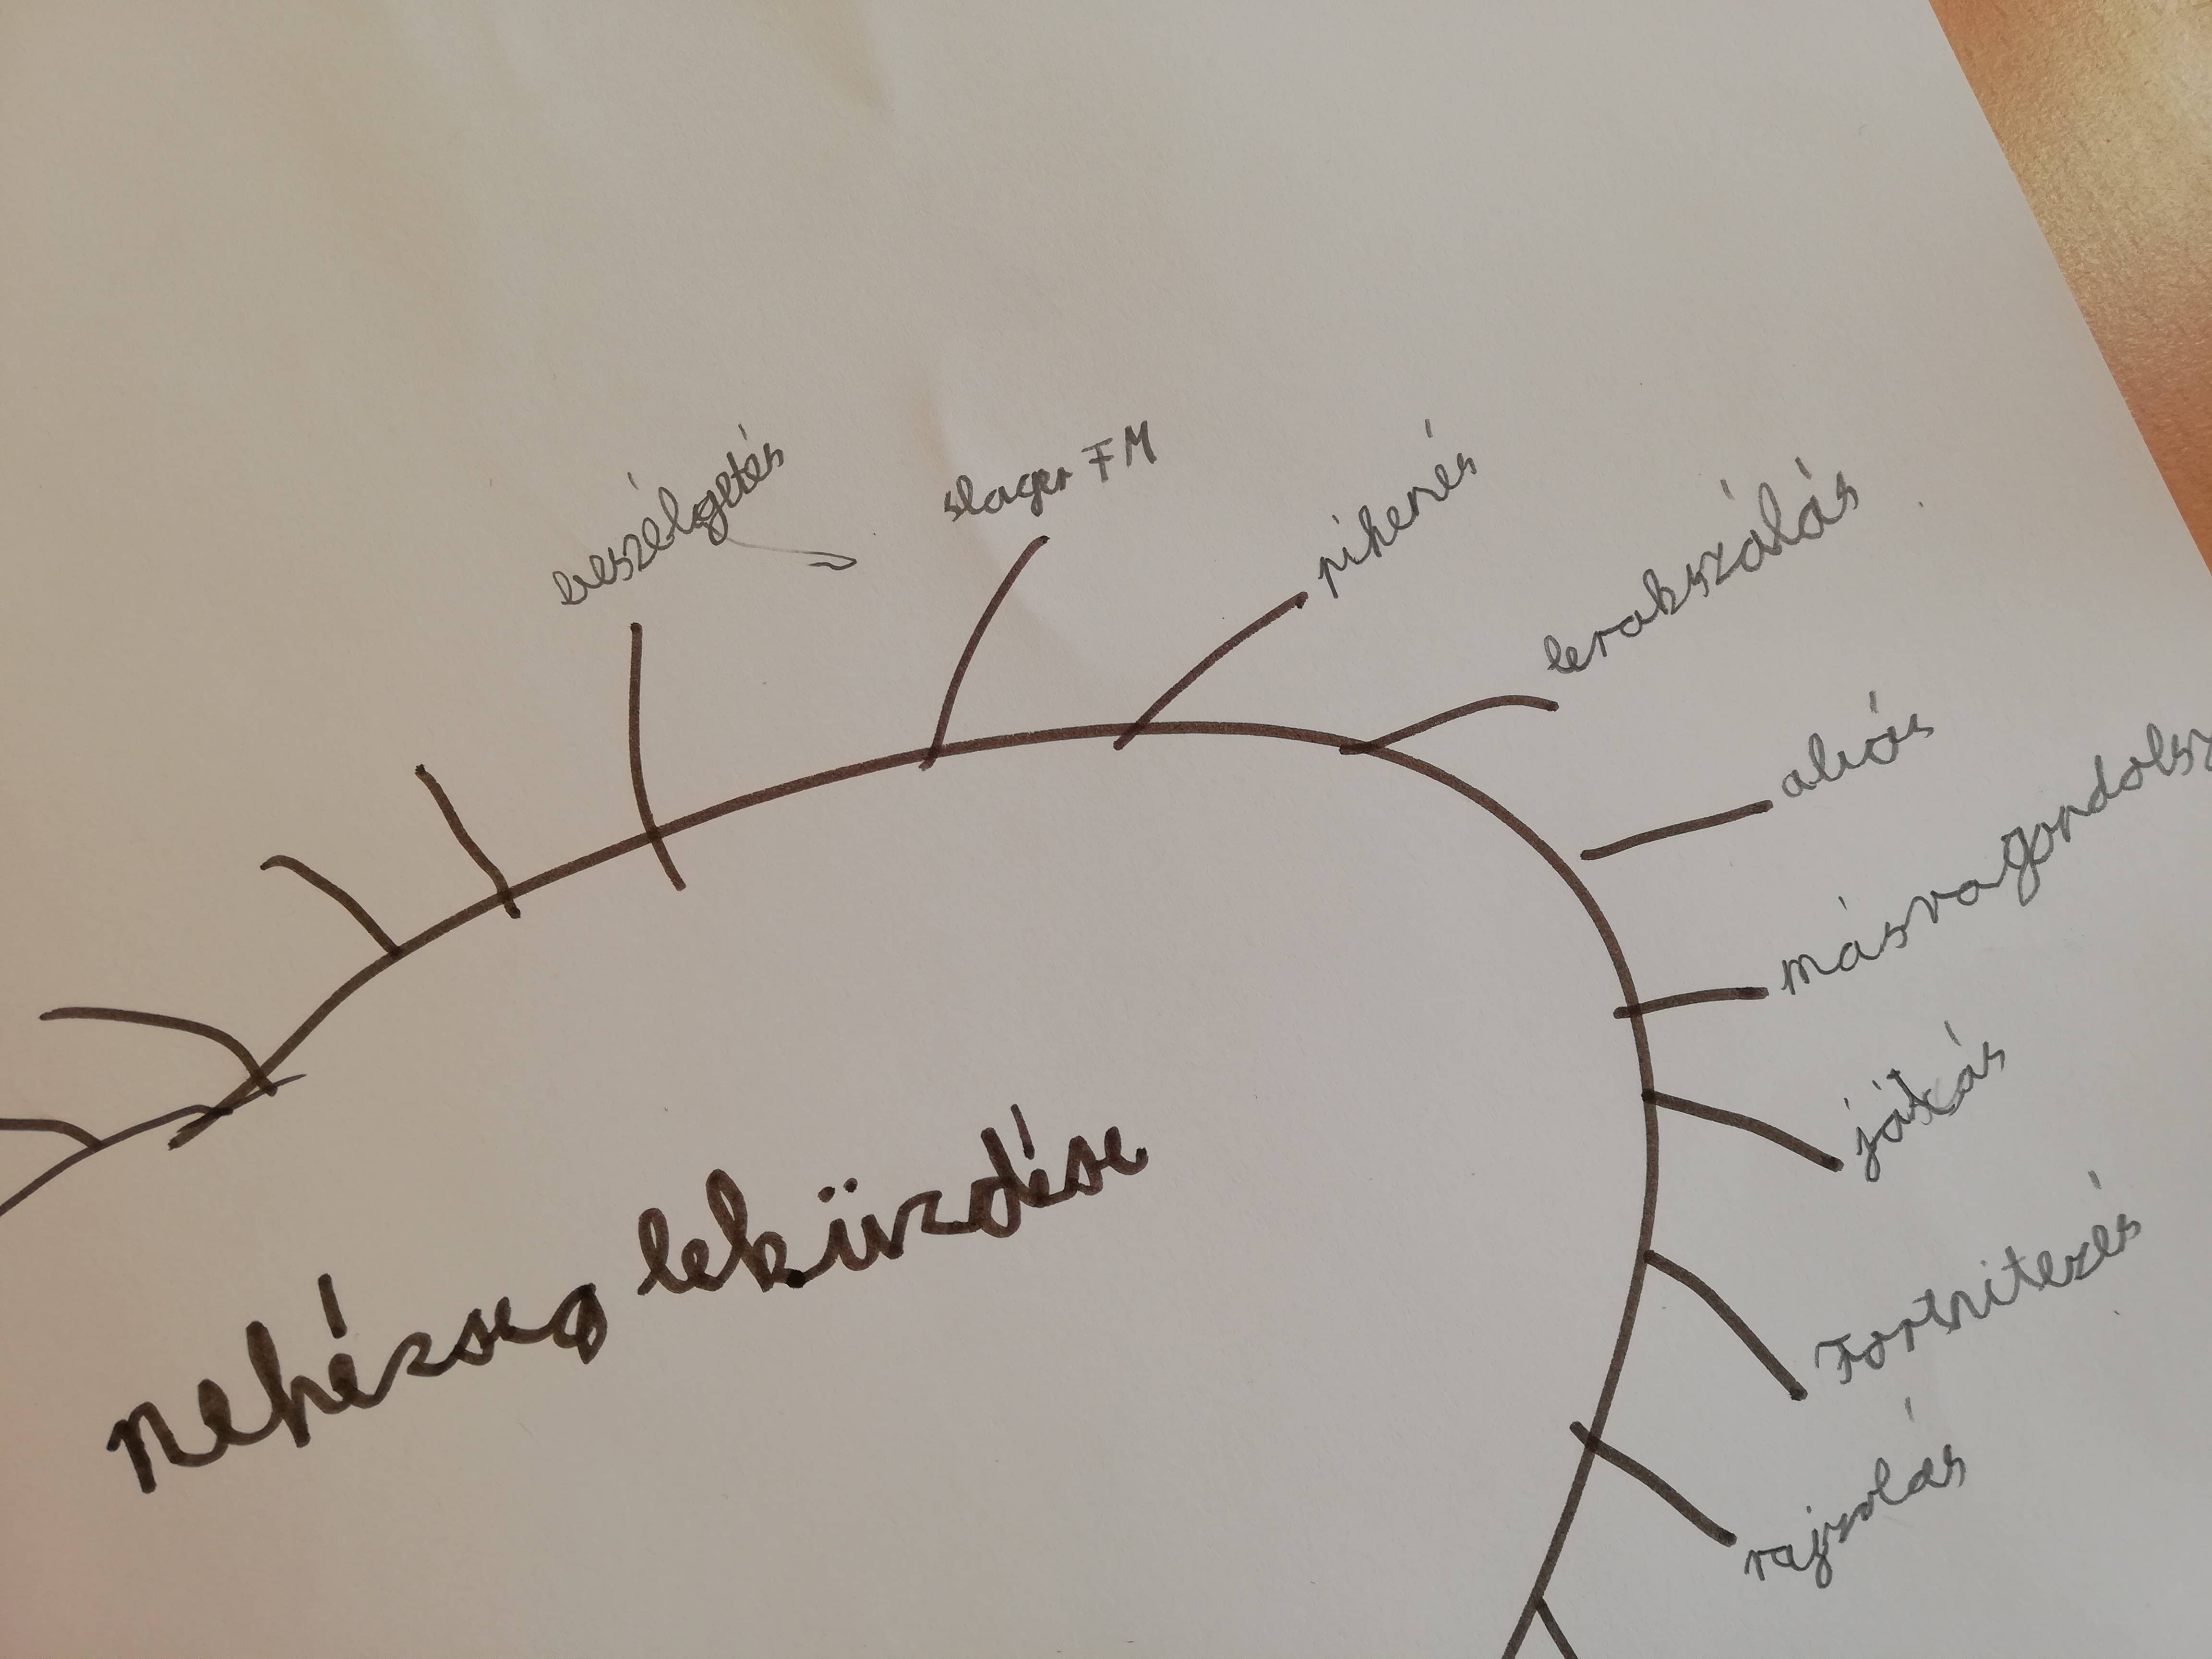 beszélgetés
slager FM
pihenés
lerakszálás
alvás
másragondolsz
játkás
Fortnitezés
rajzolás
nehézseg leküzdése